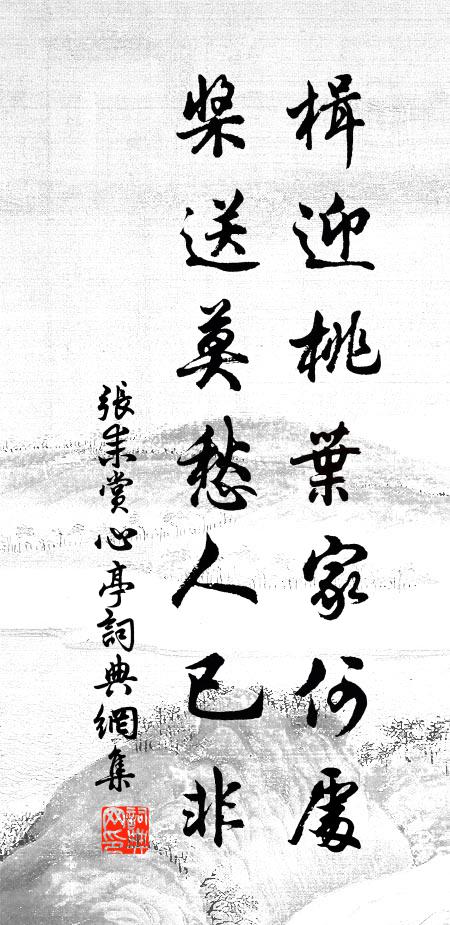 楫迎桃葉家何處
槳送莫愁人已非
張耒賞心亭詞典網集